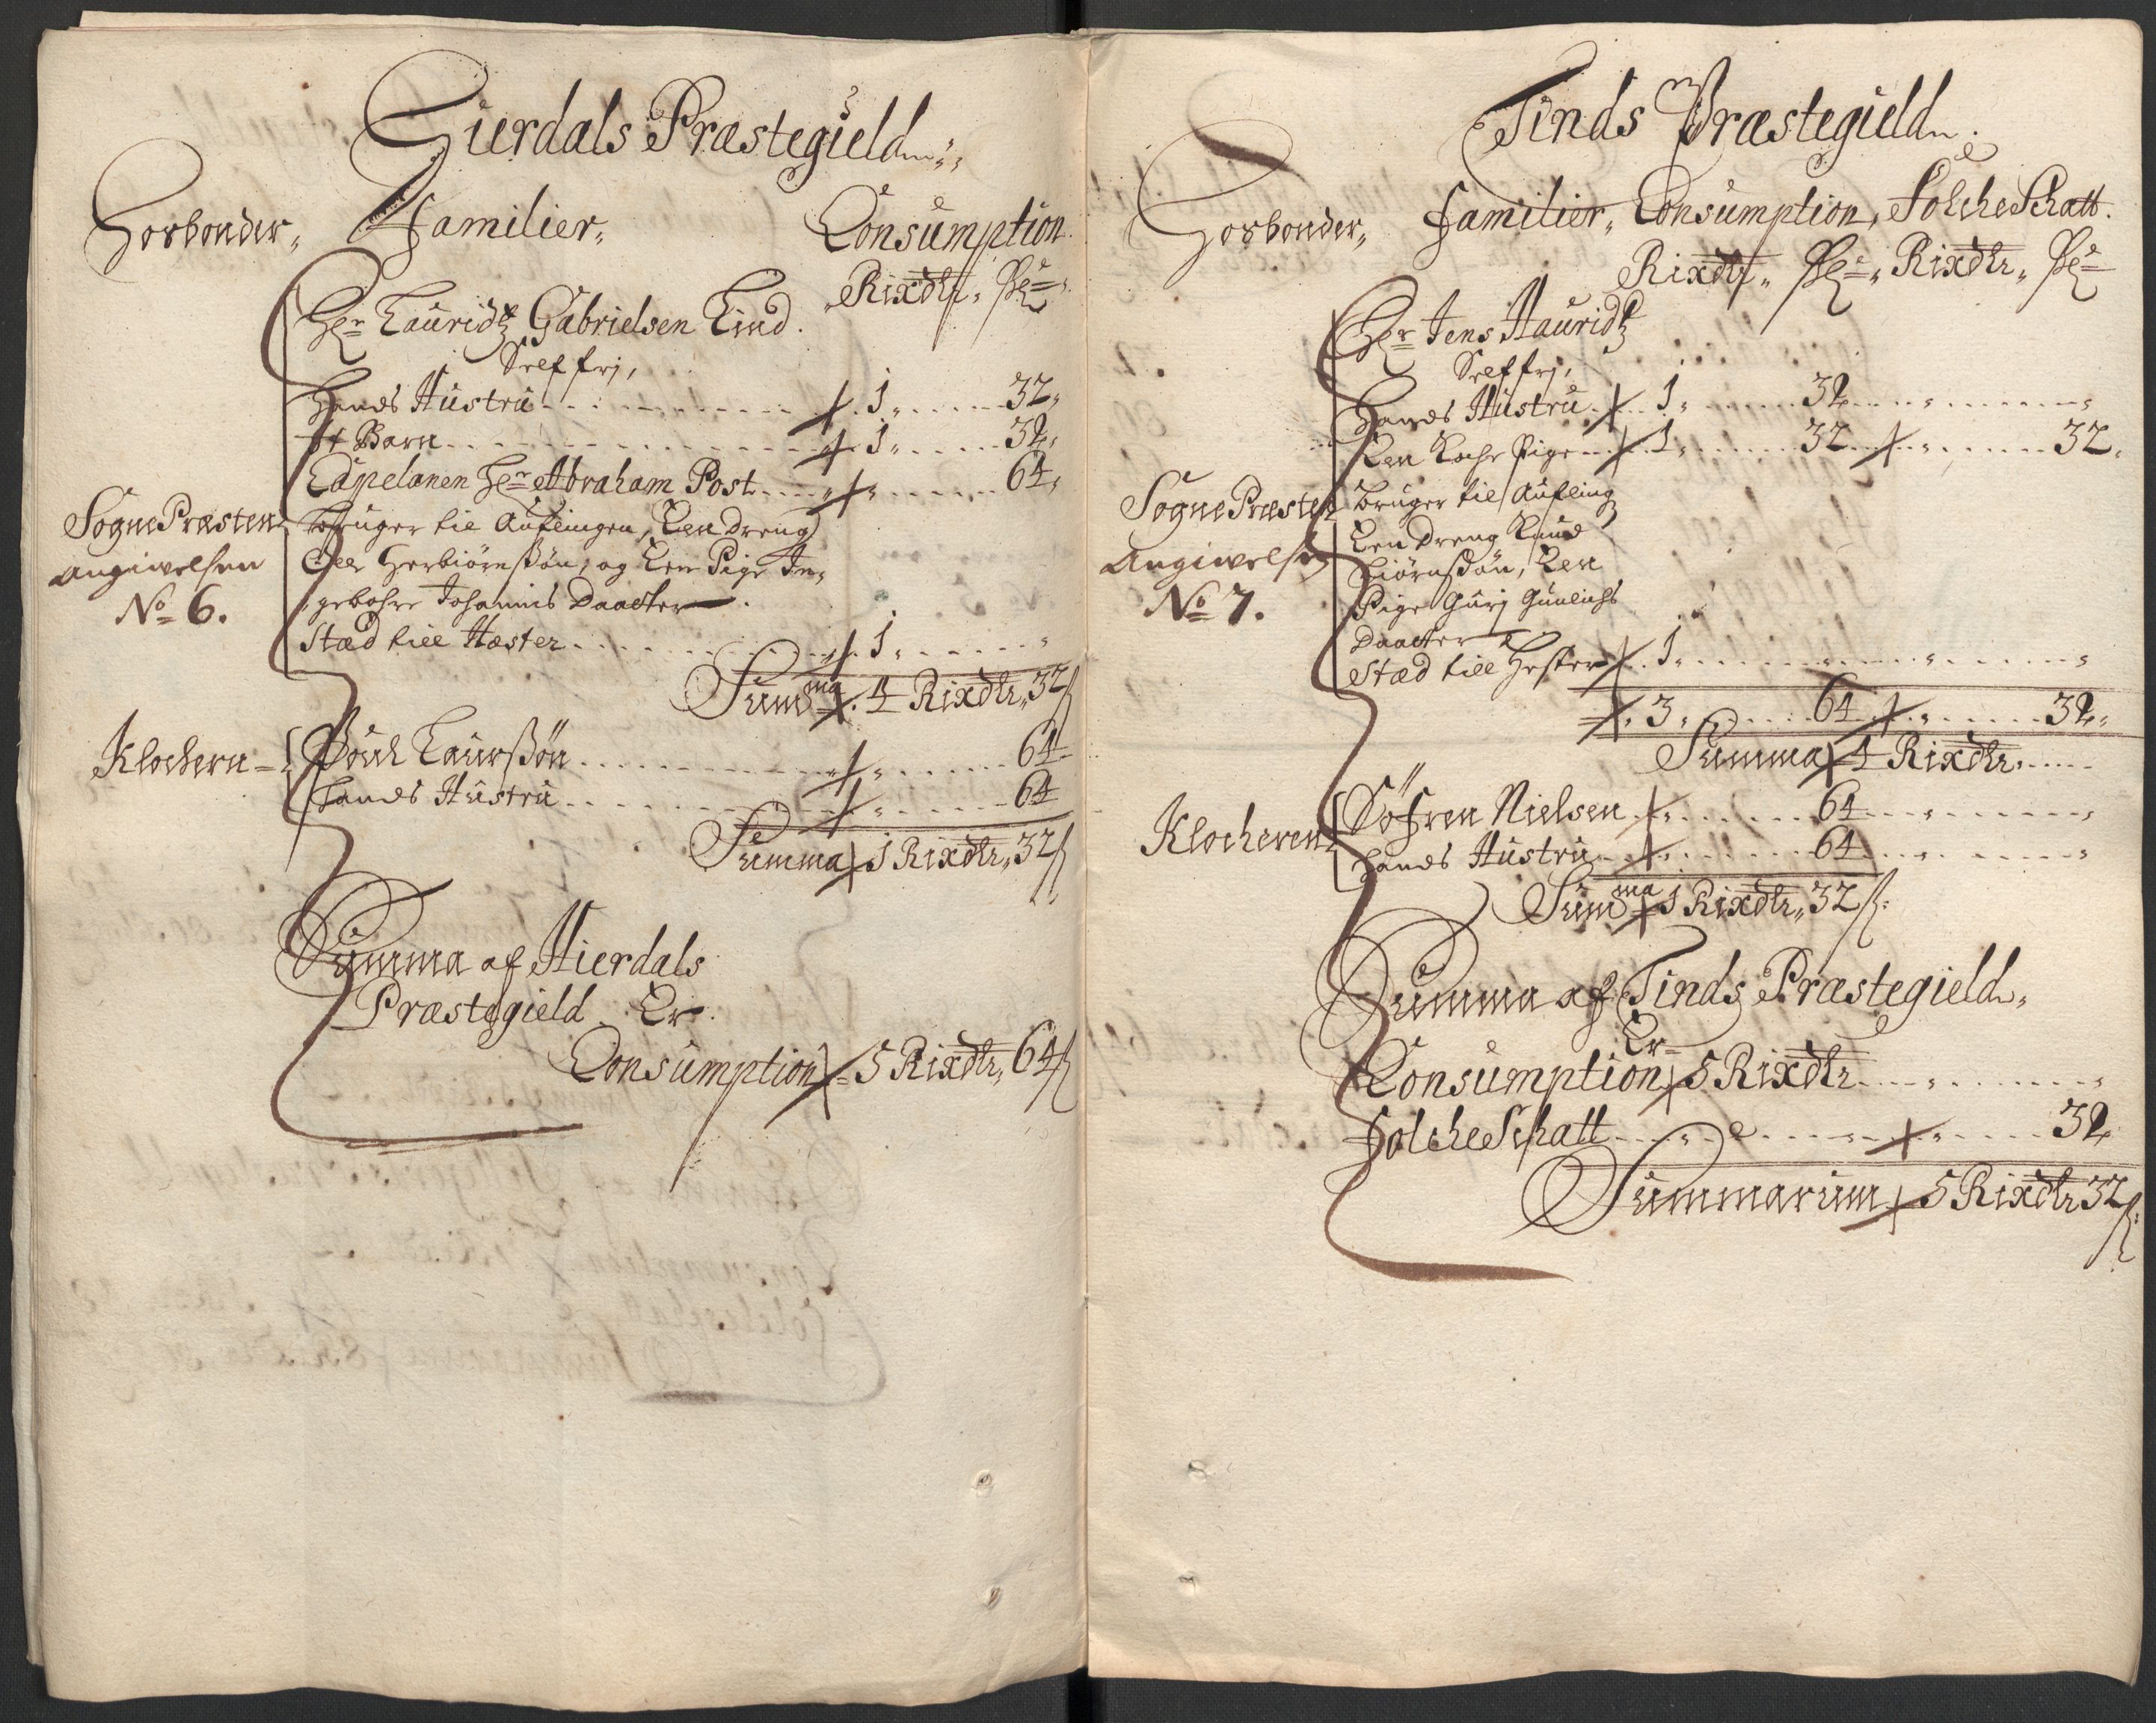 Hierdals Præstegield
Hosbonder, Familier, Consumption.
Rixdlr, ß
Hr Lauridtz Gabrielsen Lind.
Self fri,
Hands Hustru 1 32
Et Barn 1 32
Capelanen Hr Abraham Post 64
SognePræsten
Bruger til Auflingen, Een Dreng
Angivelsen
Herbiørnßøn, og Een Pige In-
No 6.
gebohr Johannis Daatter
Stæd till Hæster 1
Summa 4 Rixdlr, 32 ß
Klochern
Poul Laurßøn 64
Hands Hustru 64
Summa 1 Rixdlr, 32 ß
Summa af Hierdals
Præstegield Er
Consumption 5 Rixdlr, 64 ß
Tinds Præstegield
Hosbonder, Familier, Consumption, FolcheSchatt.
Rixdlr, ß, Rixdlr, ß
Hr Jens Lauridtz
Self fri,
Hands Hustru 1 32
Een Koche Pige 1 32 32
SognePræsten
Bruger til Aufling
Een Dreng Knud
Angivelse
Biørnßøn, Een
No 7.
Pige Guri Gunlichs
Daatter
Stæd till Hester 1
3 64 32
Summa 4 Rixdlr
Klocheren
Söfren Nielsen 64
Hands Hustru 64
Summa 1 Rixdlr, 32 ß
Summa af Tinds Præstegield
Er
Consumption 5 Rixdlr
FolcheSchatt 32
Summarum 5 Rixdlr 32 ß